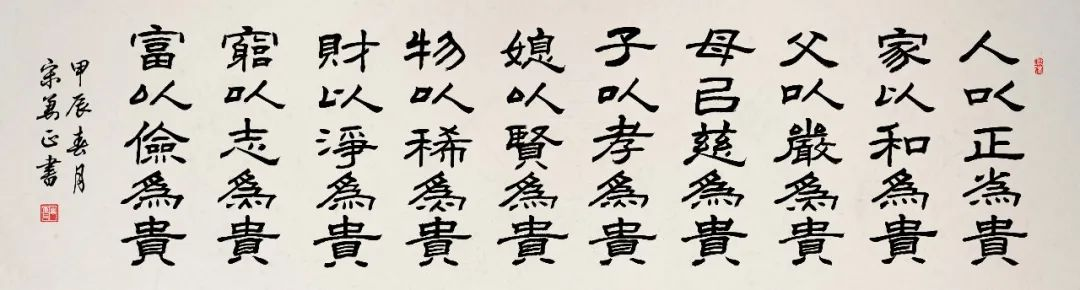 人以正為貴
家以和為貴
父以嚴為貴
母㠯慈為貴
子以孝為貴
媳以賢為貴
物以稀為貴
財以淨為貴
窮以志為貴
富以儉為貴
甲辰春月
宗萬正書